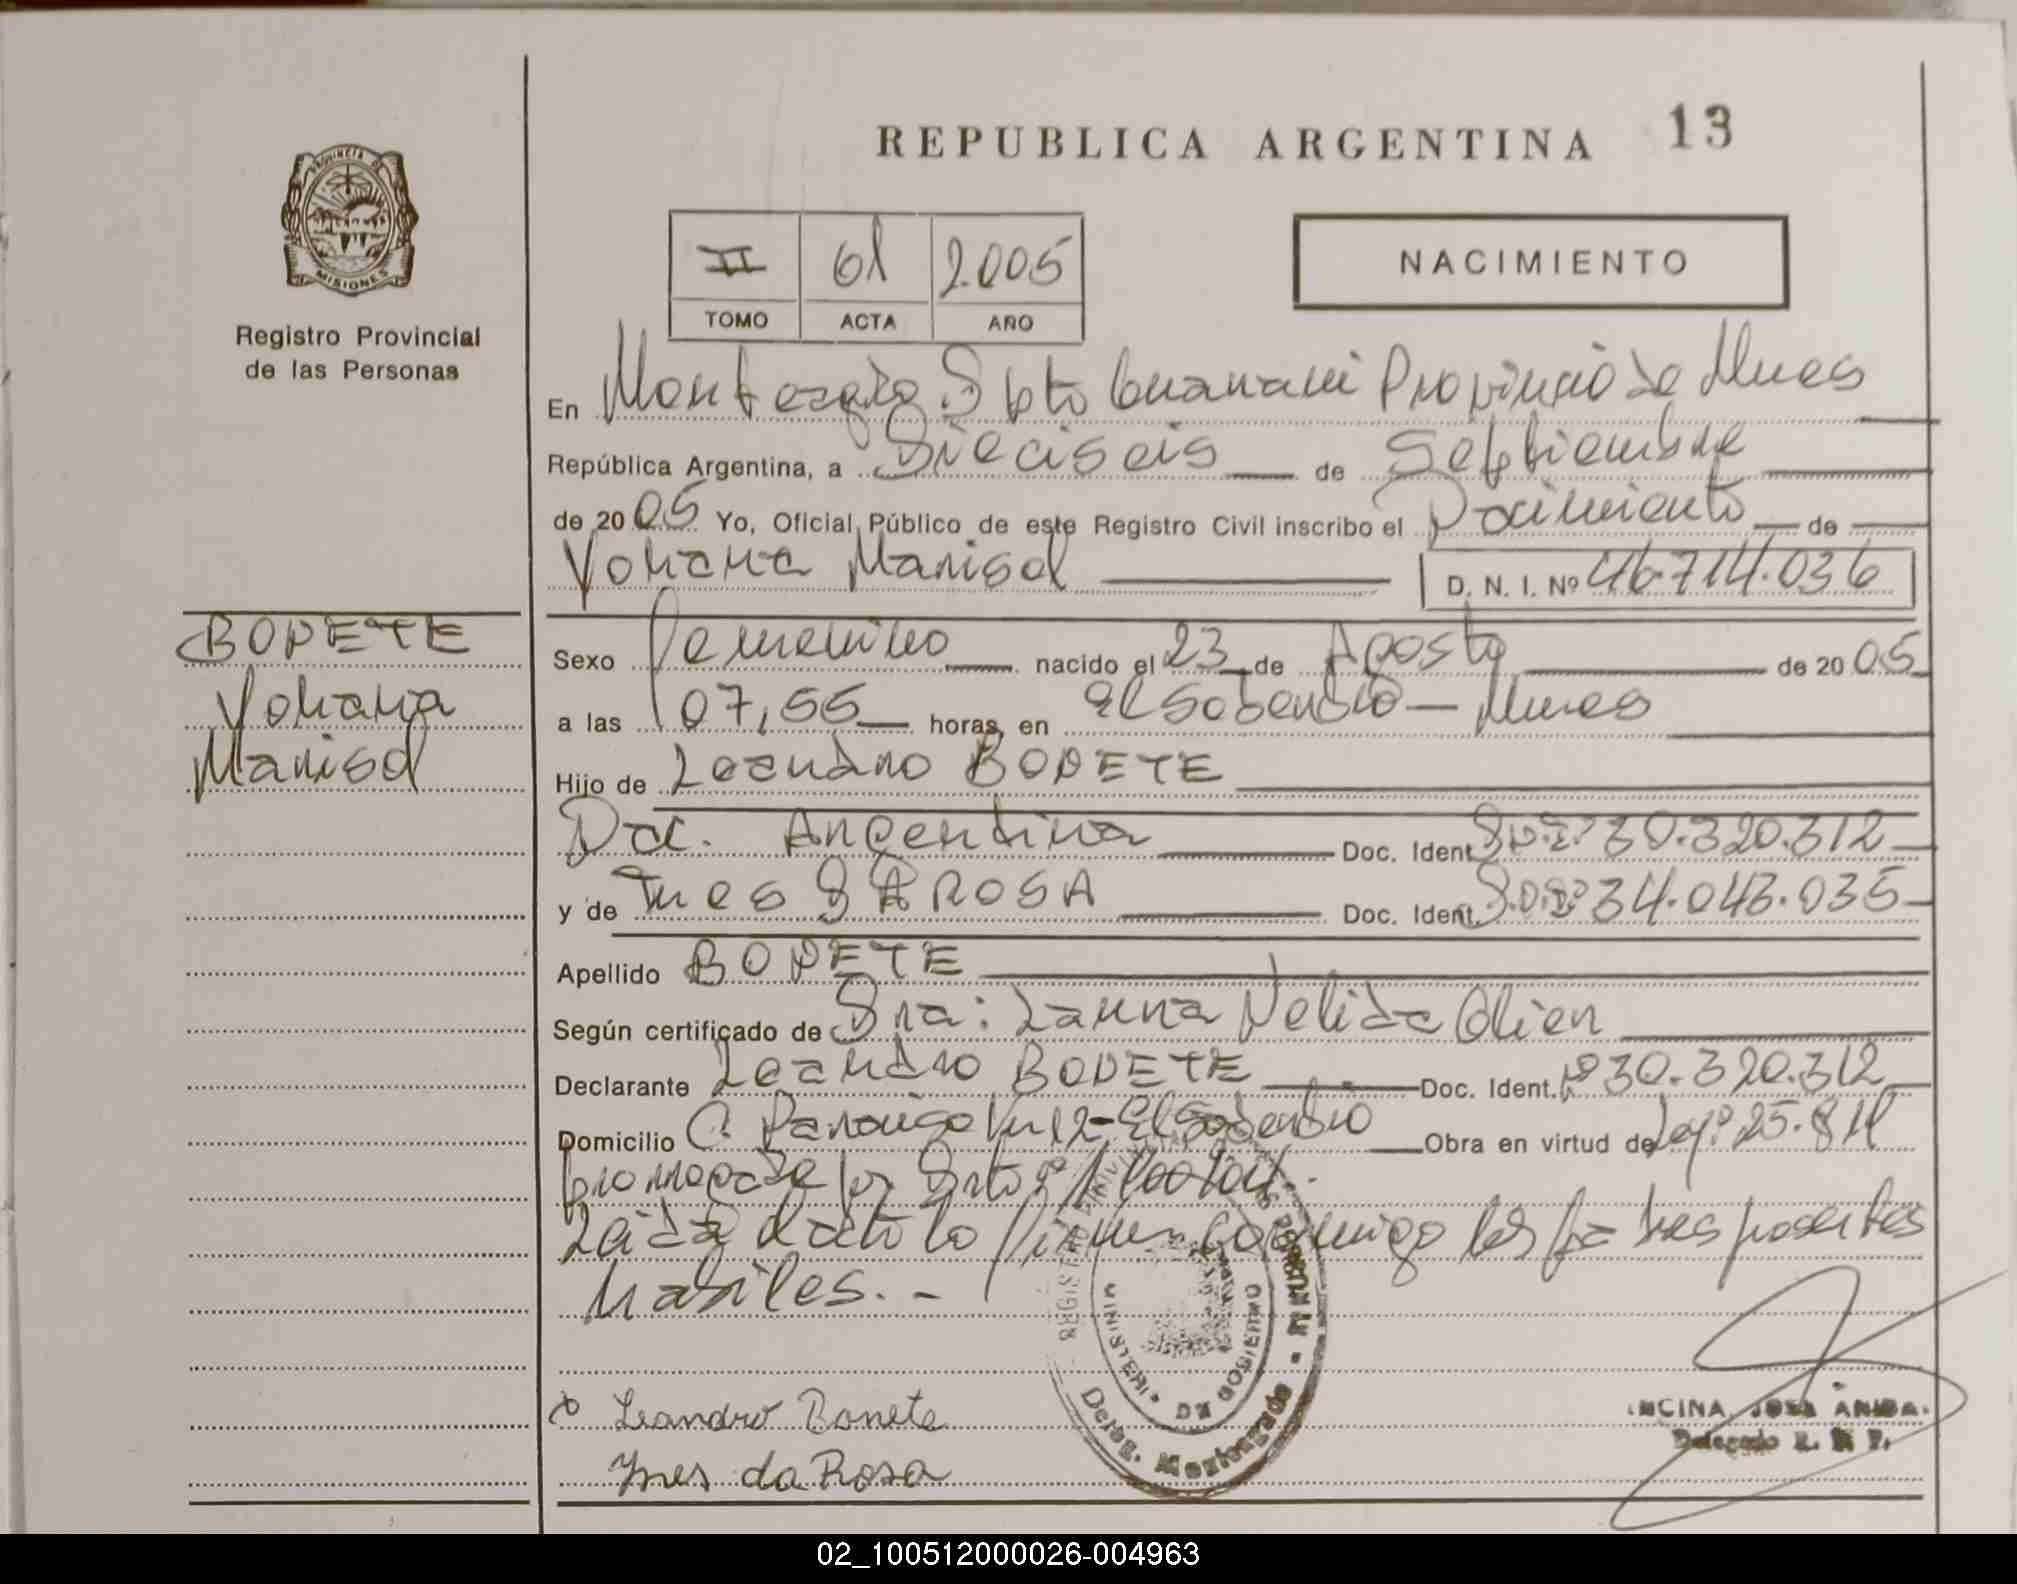 REPUBLICA ARGENTINA 13
PROVINCIA DE
MISIONES
Registro Provincial
de las Personas
II 61 2.005
TOMO ACTA AÑO
NACIMIENTO
En Dpto Guarani Provincia de Mnes
República Argentina, a Dieciseis de Septiembre
de 2005 Yo, Oficial Público de este Registro Civil inscribo el Nacimiento de
Yohana Marisol D. N. I. Nº 46.714.036
BONETE
Yohana
Marisol
Sexo Femenino nacido el 23 de Agosto de 2005
a las 07,55 horas, en El Soberbio - Mnes
Hijo de Leandro BONETE
Nac. Argentina Doc. Ident. D.N.I. 30.320.312
y de Ines DA ROSA Doc. Ident. D.N.I. 34.043.035
Apellido BONETE
Según certificado de Dra: Launa Nelida Olien
Declarante Leandro BONETE Doc. Ident. Nº 30.320.312
Domicilio Km 12 - El Soberbio Obra en virtud de Ley Nº 25.819
por Dcto
Leida el acta la firman conmigo los padres presentes
habiles. -
REGISTRO DE LAS PERSONAS
MINISTERIO DE GOBIERNO
Deleg.
Leandro Bonete
Ynes da Rosa
ENCINA JOSE ANIBAL
Delegado R. P.
02_100512000026-004963